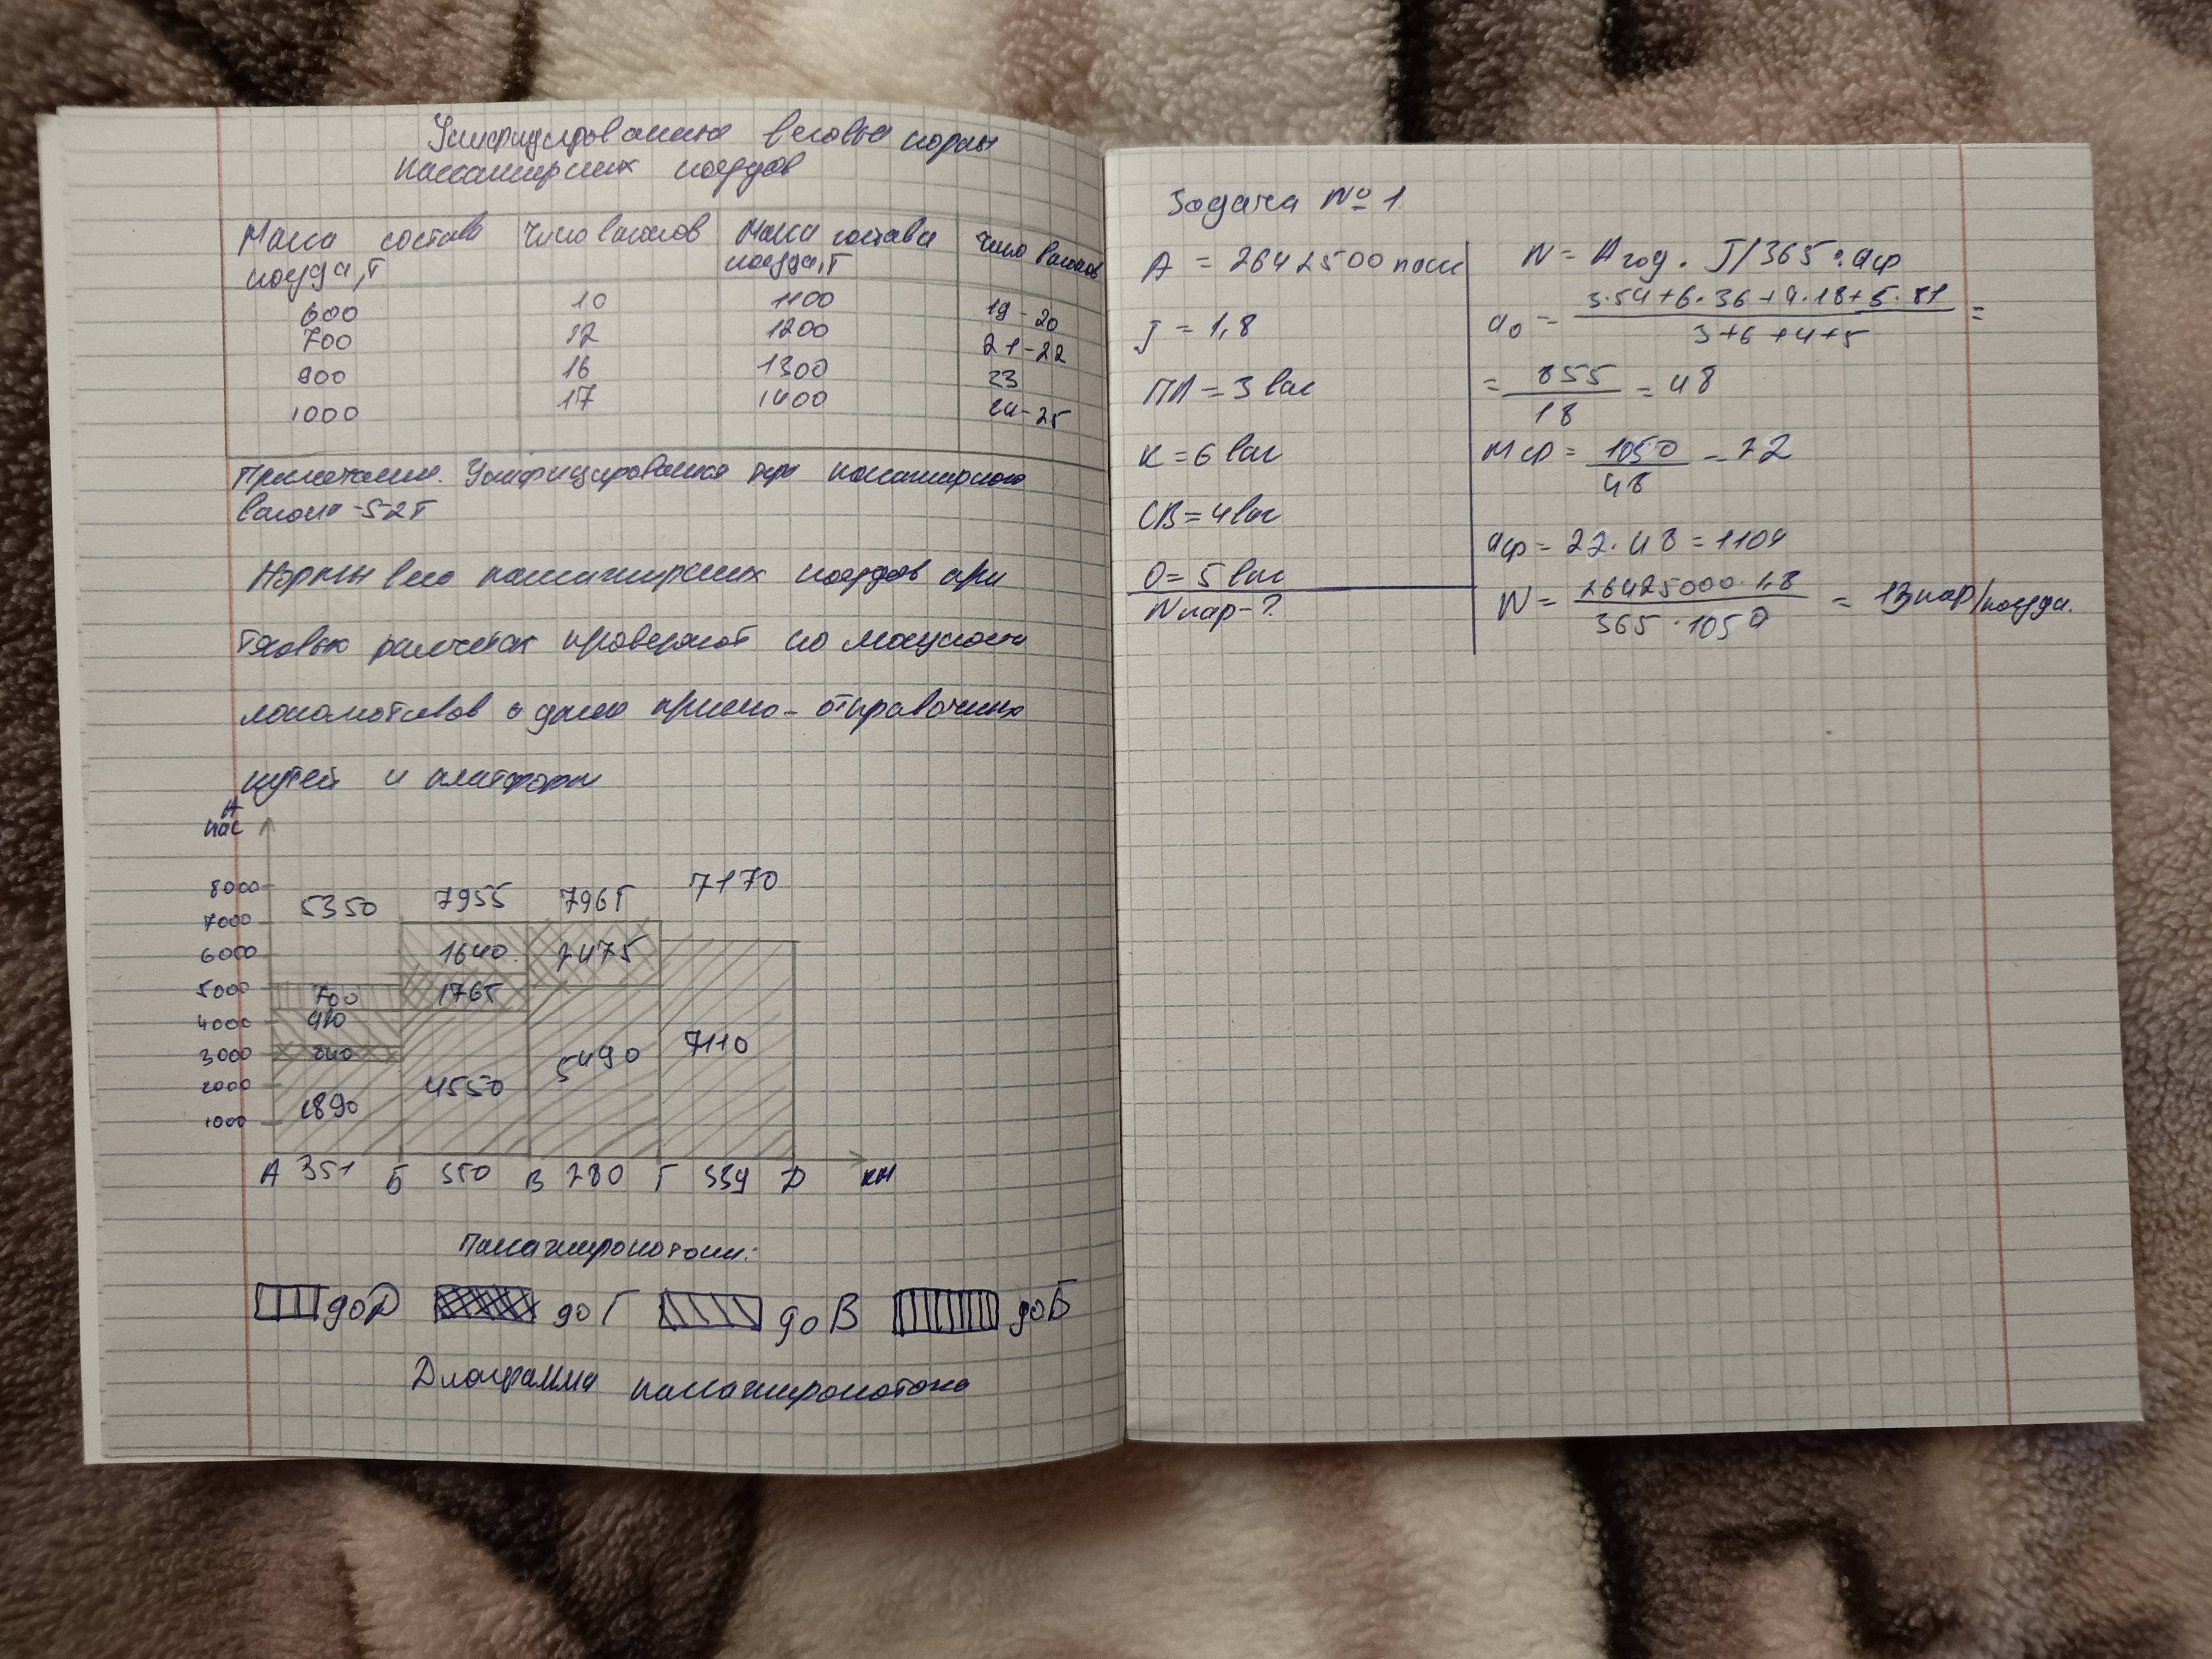 Унифицирование весовые нормы
пассажирских поездов
Масса состава поезда,т Число вагонов Масса состава поезда,т Число вагонов
600 10 1100 19-20
700 12 1200 21-22
900 16 1300 23
1000 17 1400 24-25
Примечание. Унифицированная пассажирского
вагона -52т
Нормы веса пассажирских поездов при
тяговых расчетах проверяют по мощности
локомотивов и длине приемо-отправочных
путей и платформ
А
пас
8000 5350 7955 7965 7170
7000
6000 1640 2475
5000 700 1765
4000 910
3000 240 5490 7110
2000 4550
1000 1890
А 351 Б 550 В 280 Г 339 Д км
Пассажиропотоки:
до Д до Г до В до Б
Диаграмма пассажиропотока
Задача № 1
А = 2642500 пасс
J = 1,8
ПЛ = 3 ваг
К = 6 ваг
СВ = 4 ваг
О = 5 ваг
Nпар-?
N = Агод · J/365 · aср
a0 = 3·54+6·36+4·18+5·81 / 3+6+4+5 =
= 855 / 18 = 48
mср = 1050 / 48 = 22
aср = 22·48 = 1104
N = 26425000·1,8 / 365·1050 = 13 пар/поезда.